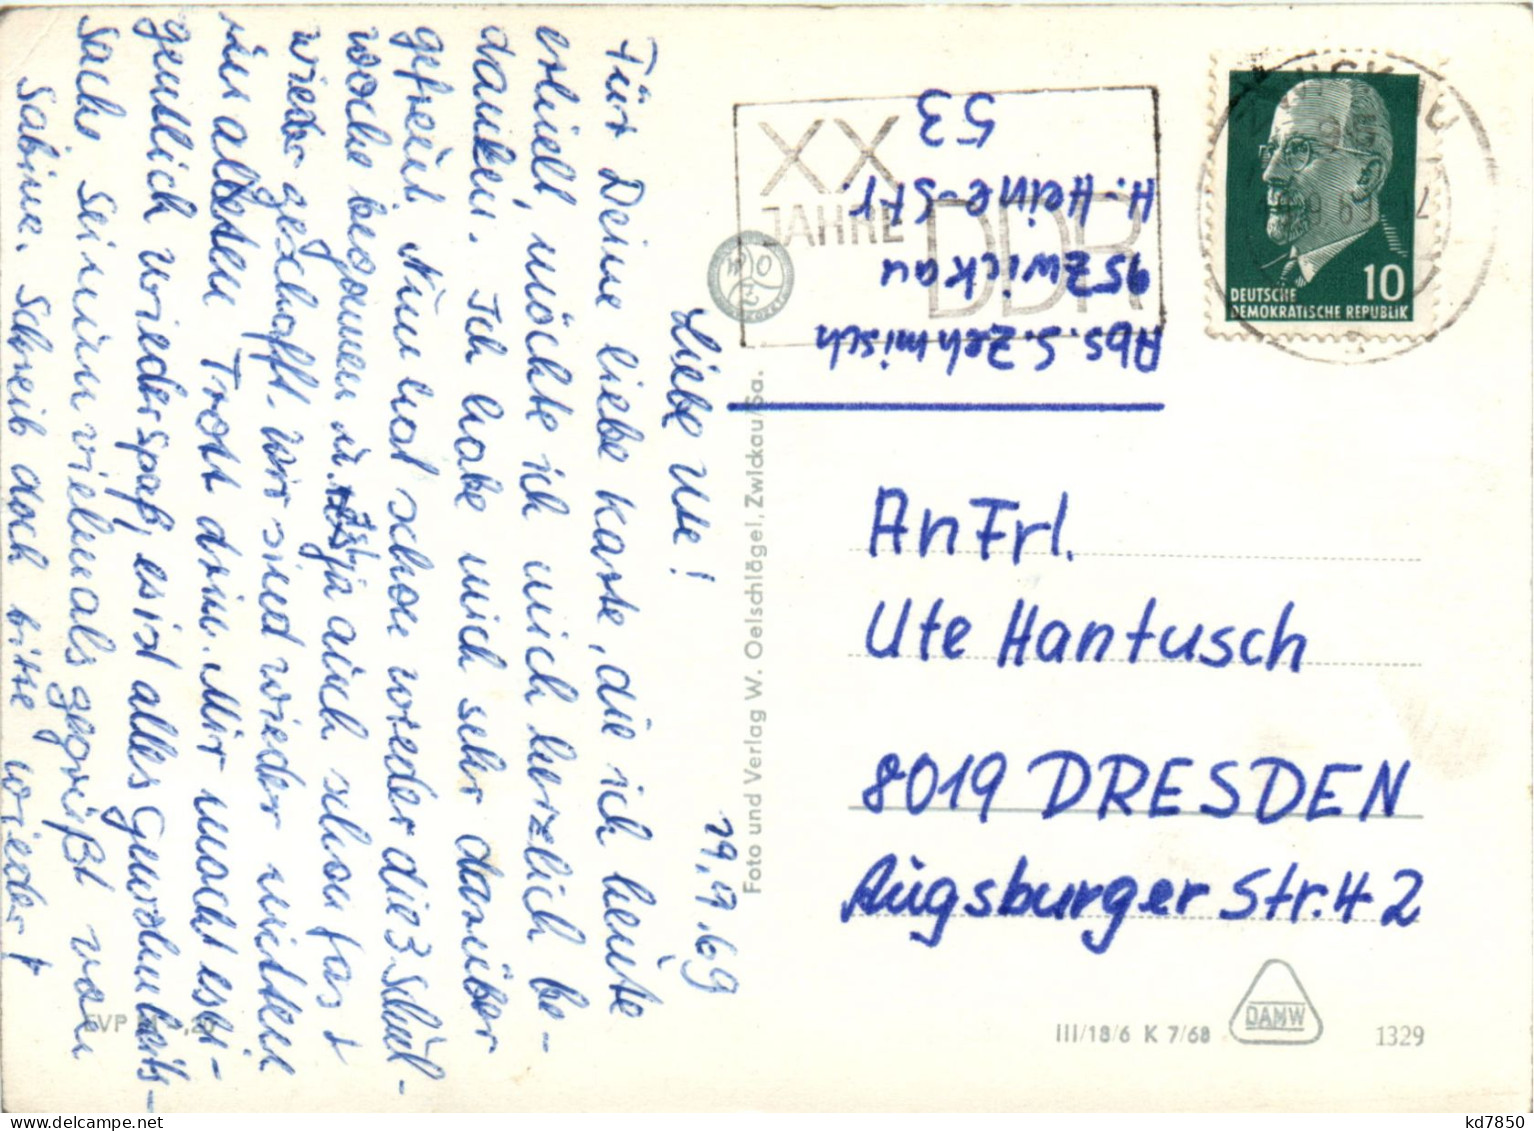 19.9.69
Liebe Ute!
Für Deine liebe Karte, die ich heute
erhielt, möchte ich mich herzlich be-
danken. Ich habe mich sehr darüber
gefreut. Nun hat schon wieder die 3. Schul-
woche begonnen u. ist ja auch schon fast
wieder geschafft. Wir sind wieder mitten
im alten Trott drin. Mir macht es ei-
gentlich wieder Spaß, es ist alles Gewohnheits-
sache. Sei nun vielmals gegrüßt von
Sabine. Schreib doch bitte wieder!
EVP
Foto und Verlag W. Oelschlägel, Zwickau/Sa.
Abs. S. Zehmisch
95 Zwickau
H. Heine-Str.
53
XX
JAHRE
DDR
ZWICKAU
10
DEUTSCHE
DEMOKRATISCHE REPUBLIK
An Frl.
Ute Hantusch
8019 DRESDEN
Augsburger Str. 42
III/18/6 K 7/68
DAMW
1329
kd7850